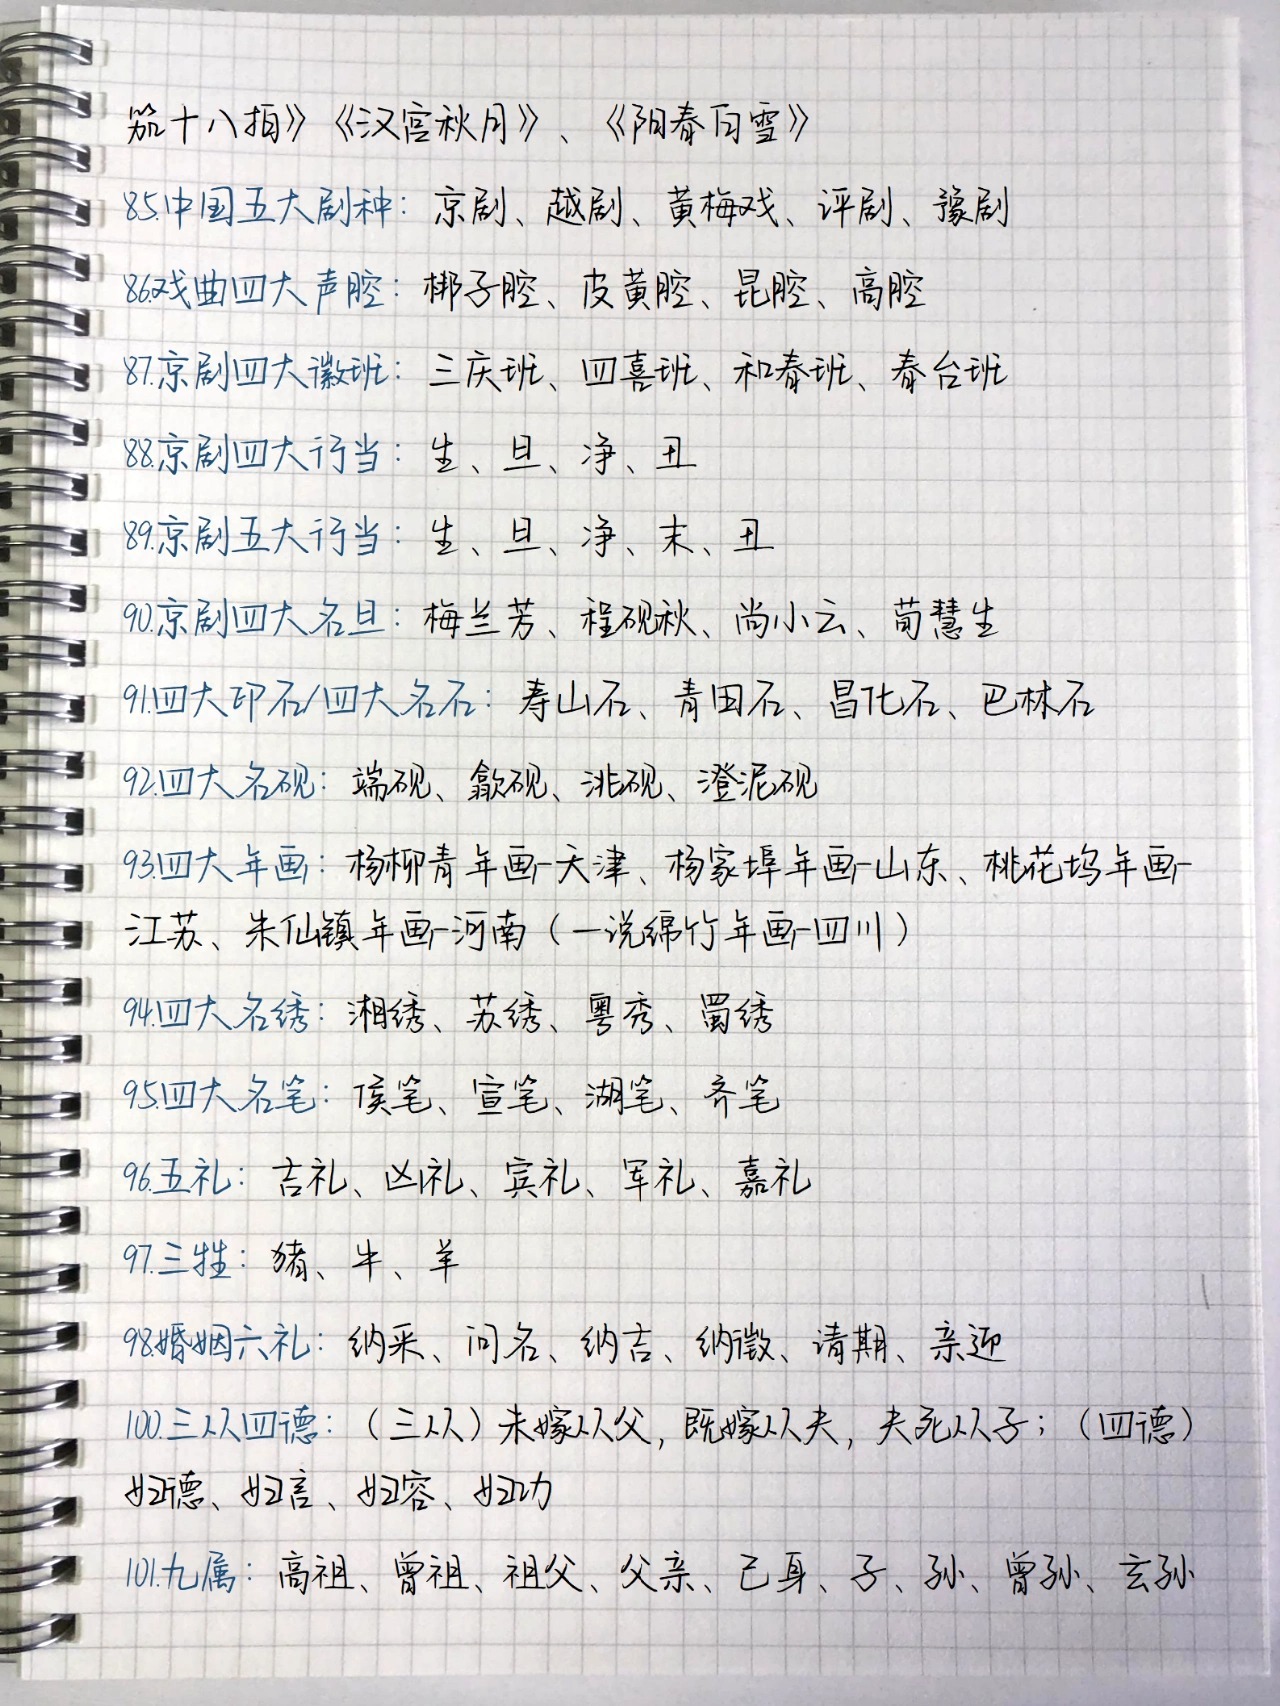 笳十八拍》《汉宫秋月》、《阳春白雪》
85.中国五大剧种：京剧、越剧、黄梅戏、评剧、豫剧
86.戏曲四大声腔：梆子腔、皮黄腔、昆腔、高腔
87.京剧四大徽班：三庆班、四喜班、和春班、春台班
88.京剧四大行当：生、旦、净、丑
89.京剧五大行当：生、旦、净、末、丑
90.京剧四大名旦：梅兰芳、程砚秋、尚小云、荀慧生
91.四大印石/四大名石：寿山石、青田石、昌化石、巴林石
92.四大名砚：端砚、歙砚、洮砚、澄泥砚
93.四大年画：杨柳青年画-天津、杨家埠年画-山东、桃花坞年画-
江苏、朱仙镇年画-河南（一说绵竹年画-四川）
94.四大名绣：湘绣、苏绣、粤秀、蜀绣
95.四大名笔：侯笔、宣笔、湖笔、齐笔
96.五礼：吉礼、凶礼、宾礼、军礼、嘉礼
97.三牲：猪、牛、羊
98.婚姻六礼：纳采、问名、纳吉、纳徵、请期、亲迎
100.三从四德：（三从）未嫁从父，既嫁从夫，夫死从子；（四德）
妇德、妇言、妇容、妇功
101.九属：高祖、曾祖、祖父、父亲、己身、子、孙、曾孙、玄孙